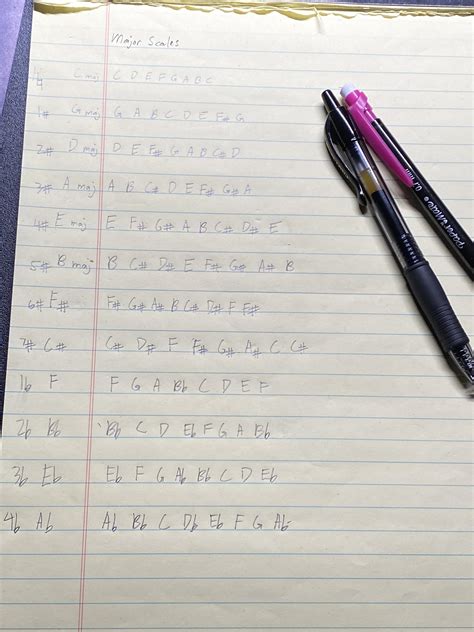 Major Scales
♮ C maj C D E F G A B C
1# G maj G A B C D E F# G
2# D maj D E F# G A B C# D
3# A maj A B C# D E F# G# A
4# E maj E F# G# A B C# D# E
5# B maj B C# D# E F# G# A# B
6# F# F# G# A# B C# D# F F#
7# C# C# D# F F# G# A# C C#
1b F F G A Bb C D E F
2b Bb Bb C D Eb F G A Bb
3b Eb Eb F G Ab Bb C D Eb
4b Ab Ab Bb C Db Eb F G Ab
PaperMate 0.7mm